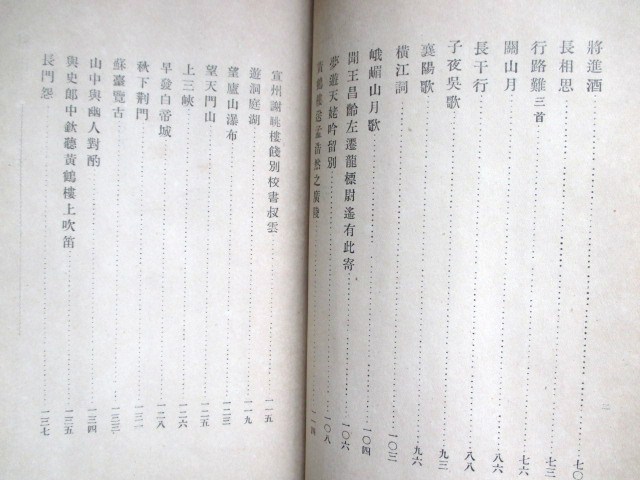 將進酒 七〇
長相思 七三
行路難 三首 七六
關山月 八六
長干行 八八
子夜吳歌 九三
襄陽歌 九六
橫江詞 一〇三
峨嵋山月歌 一〇四
聞王昌齡左遷龍標尉遙有此寄 一〇六
夢遊天姥吟留別 一〇八
黃鶴樓送孟浩然之廣陵 一一四
宣州謝朓樓餞別校書叔雲 一一五
遊洞庭湖 一一九
望廬山瀑布 一二三
望天門山 一二五
上三峽 一二六
早發白帝城 一二八
秋下荆門 一三一
蘇臺覽古 一三三
山中與幽人對酌 一三四
與史郎中欽聽黃鶴樓上吹笛 一三五
長門怨 一三七